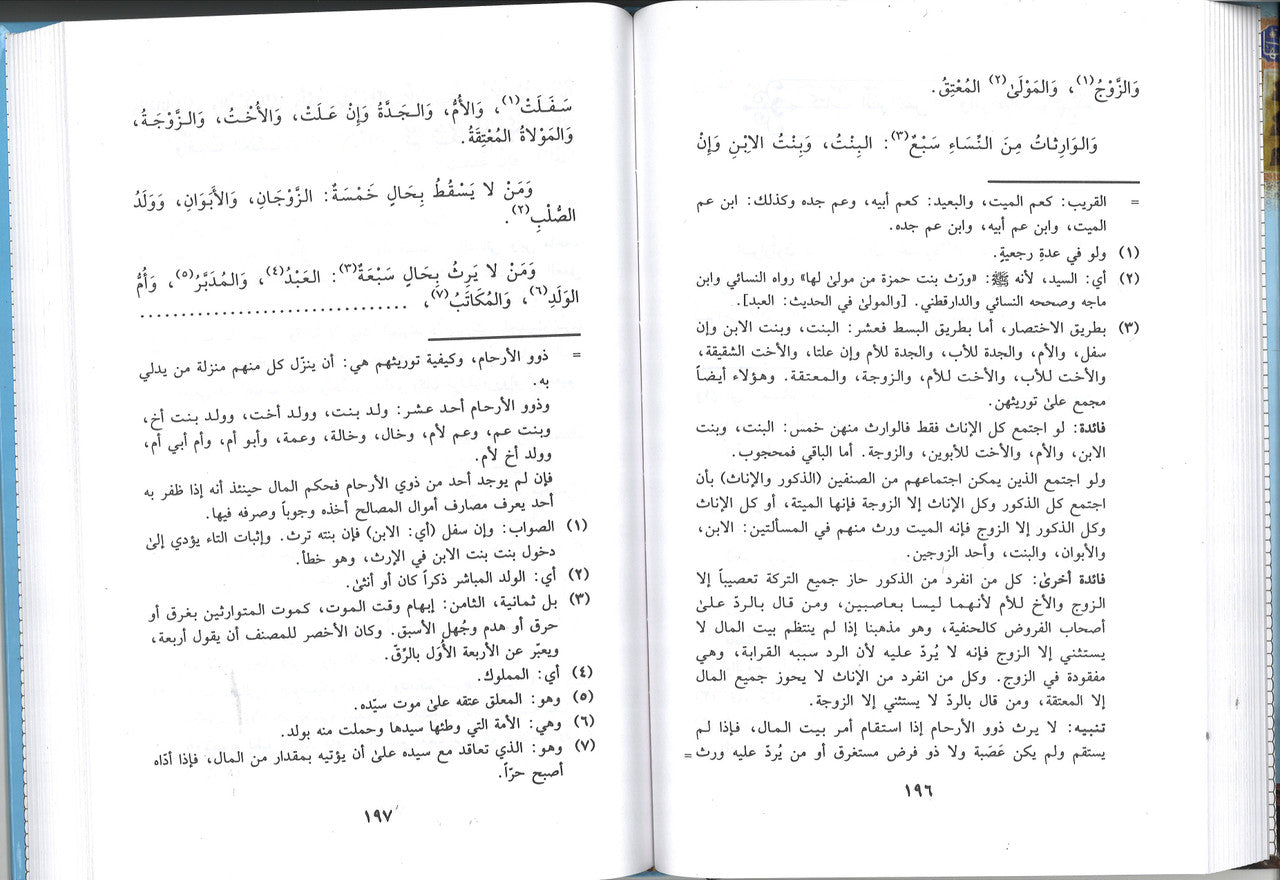 وَالزَّوْجُ(١)، وَالمَوْلَىٰ(٢) المُعْتِقُ.
وَالوَارِثاتُ مِنَ النِّسَاءِ سَبْعٌ(٣): البِنْتُ، وَبِنْتُ الاِبْنِ وَإِنْ
= القريب: كعم الميت، والبعيد: كعم أبيه، وعم جده وكذلك: ابن عم
الميت، وابن عم أبيه، وابن عم جده.
(١) ولو في عدةِ رجعيةٍ.
(٢) أي: السيد، لأنه ﷺ: «ورّث بنت حمزة من مولىٰ لها» رواه النسائي وابن
ماجه وصححه النسائي والدارقطني. [والمولىٰ في الحديث: العبد].
(٣) بطريق الاختصار، أما بطريق البسط فعشر: البنت، وبنت الابن وإن
سفل، والأم، والجدة للأب، والجدة للأم وإن علتا، والأخت الشقيقة،
والأخت للأب، والأخت للأم، والزوجة، والمعتقة. وهؤلاء أيضاً
مجمع علىٰ توريثهن.
فائدة: لو اجتمع كل الإناث فقط فالوارث منهن خمس: البنت، وبنت
الابن، والأم، والأخت للأبوين، والزوجة. أما الباقي فمحجوب.
ولو اجتمع الذين يمكن اجتماعهم من الصنفين (الذكور والإناث) بأن
اجتمع كل الذكور وكل الإناث إلا الزوجة فإنها الميتة، أو كل الإناث
وكل الذكور إلا الزوج فإنه الميت ورث منهم في المسألتين: الابن،
والأبوان، والبنت، وأحد الزوجين.
فائدة أخرىٰ: كل من انفرد من الذكور حاز جميع التركة تعصيباً إلا
الزوج والأخ للأم لأنهما ليسا بعاصبين، ومن قال بالردّ علىٰ
أصحاب الفروض كالحنفية، وهو مذهبنا إذا لم ينتظم بيت المال لا
يستثني إلا الزوج فإنه لا يُردّ عليه لأن الرد سببه القرابة، وهي
مفقودة في الزوج. وكل من انفرد من الإناث لا يحوز جميع المال
إلا المعتقة، ومن قال بالردّ لا يستثني إلا الزوجة.
تنبيه: لا يرث ذوو الأرحام إذا استقام أمر بيت المال، فإذا لم
يستقم ولم يكن عَصَبة ولا ذو فرض مستغرق أو من يُردّ عليه ورث =
١٩٦
سَفَلَتْ(١)، وَالأُمُّ، وَالجَدَّةُ وَإِنْ عَلَتْ، وَالأُخْتُ، وَالزَّوْجَةُ،
وَالمَوْلاةُ المُعْتِقَةُ.
وَمَنْ لا يَسْقُطُ بِحَالٍ خَمْسَةٌ: الزَّوْجَانِ، وَالأَبَوَانِ، وَوَلَدُ
الصُّلْبِ(٢).
وَمَنْ لا يَرِثُ بِحَالٍ سَبْعَةٌ(٣): العَبْدُ(٤)، وَالمُدَبَّرُ(٥)، وَأُمُّ
الوَلَدِ(٦)، وَالمُكَاتَبُ(٧)، ................................
= ذوو الأرحام، وكيفية توريثهم هي: أن ينزّل كل منهم منزلة من يدلي
به.
وذوو الأرحام أحد عشر: ولد بنت، وولد أخت، وولد بنت أخ،
وبنت عم، وعم لأم، وخال، وخالة، وعمة، وأبو أم، وأم أبي أم،
وولد أخ لأم.
فإن لم يوجد أحد من ذوي الأرحام فحكم المال حينئذ أنه إذا ظفر به
أحد يعرف مصارف أموال المصالح أخذه وجوباً وصرفه فيها.
(١) الصواب: وإن سفل (أي: الابن) فإن بنته ترث. وإثبات التاء يؤدي إلىٰ
دخول بنت بنت الابن في الإرث، وهو خطأ.
(٢) أي: الولد المباشر ذكراً كان أو أنثىٰ.
(٣) بل ثمانية، الثامن: إبهام وقت الموت، كموت المتوارثين بغرق أو
حرق أو هدم وجُهل الأسبق. وكان الأخصر للمصنف أن يقول أربعة،
ويعبّر عن الأربعة الأُوَل بالرِّقّ.
(٤) أي: المملوك.
(٥) وهو: المعلق عتقه علىٰ موت سيّده.
(٦) وهي: الأمة التي وطئها سيدها وحملت منه بولد.
(٧) وهو: الذي تعاقد مع سيده علىٰ أن يؤتيه بمقدار من المال، فإذا أدّاه
أصبح حرّاً.
١٩٧